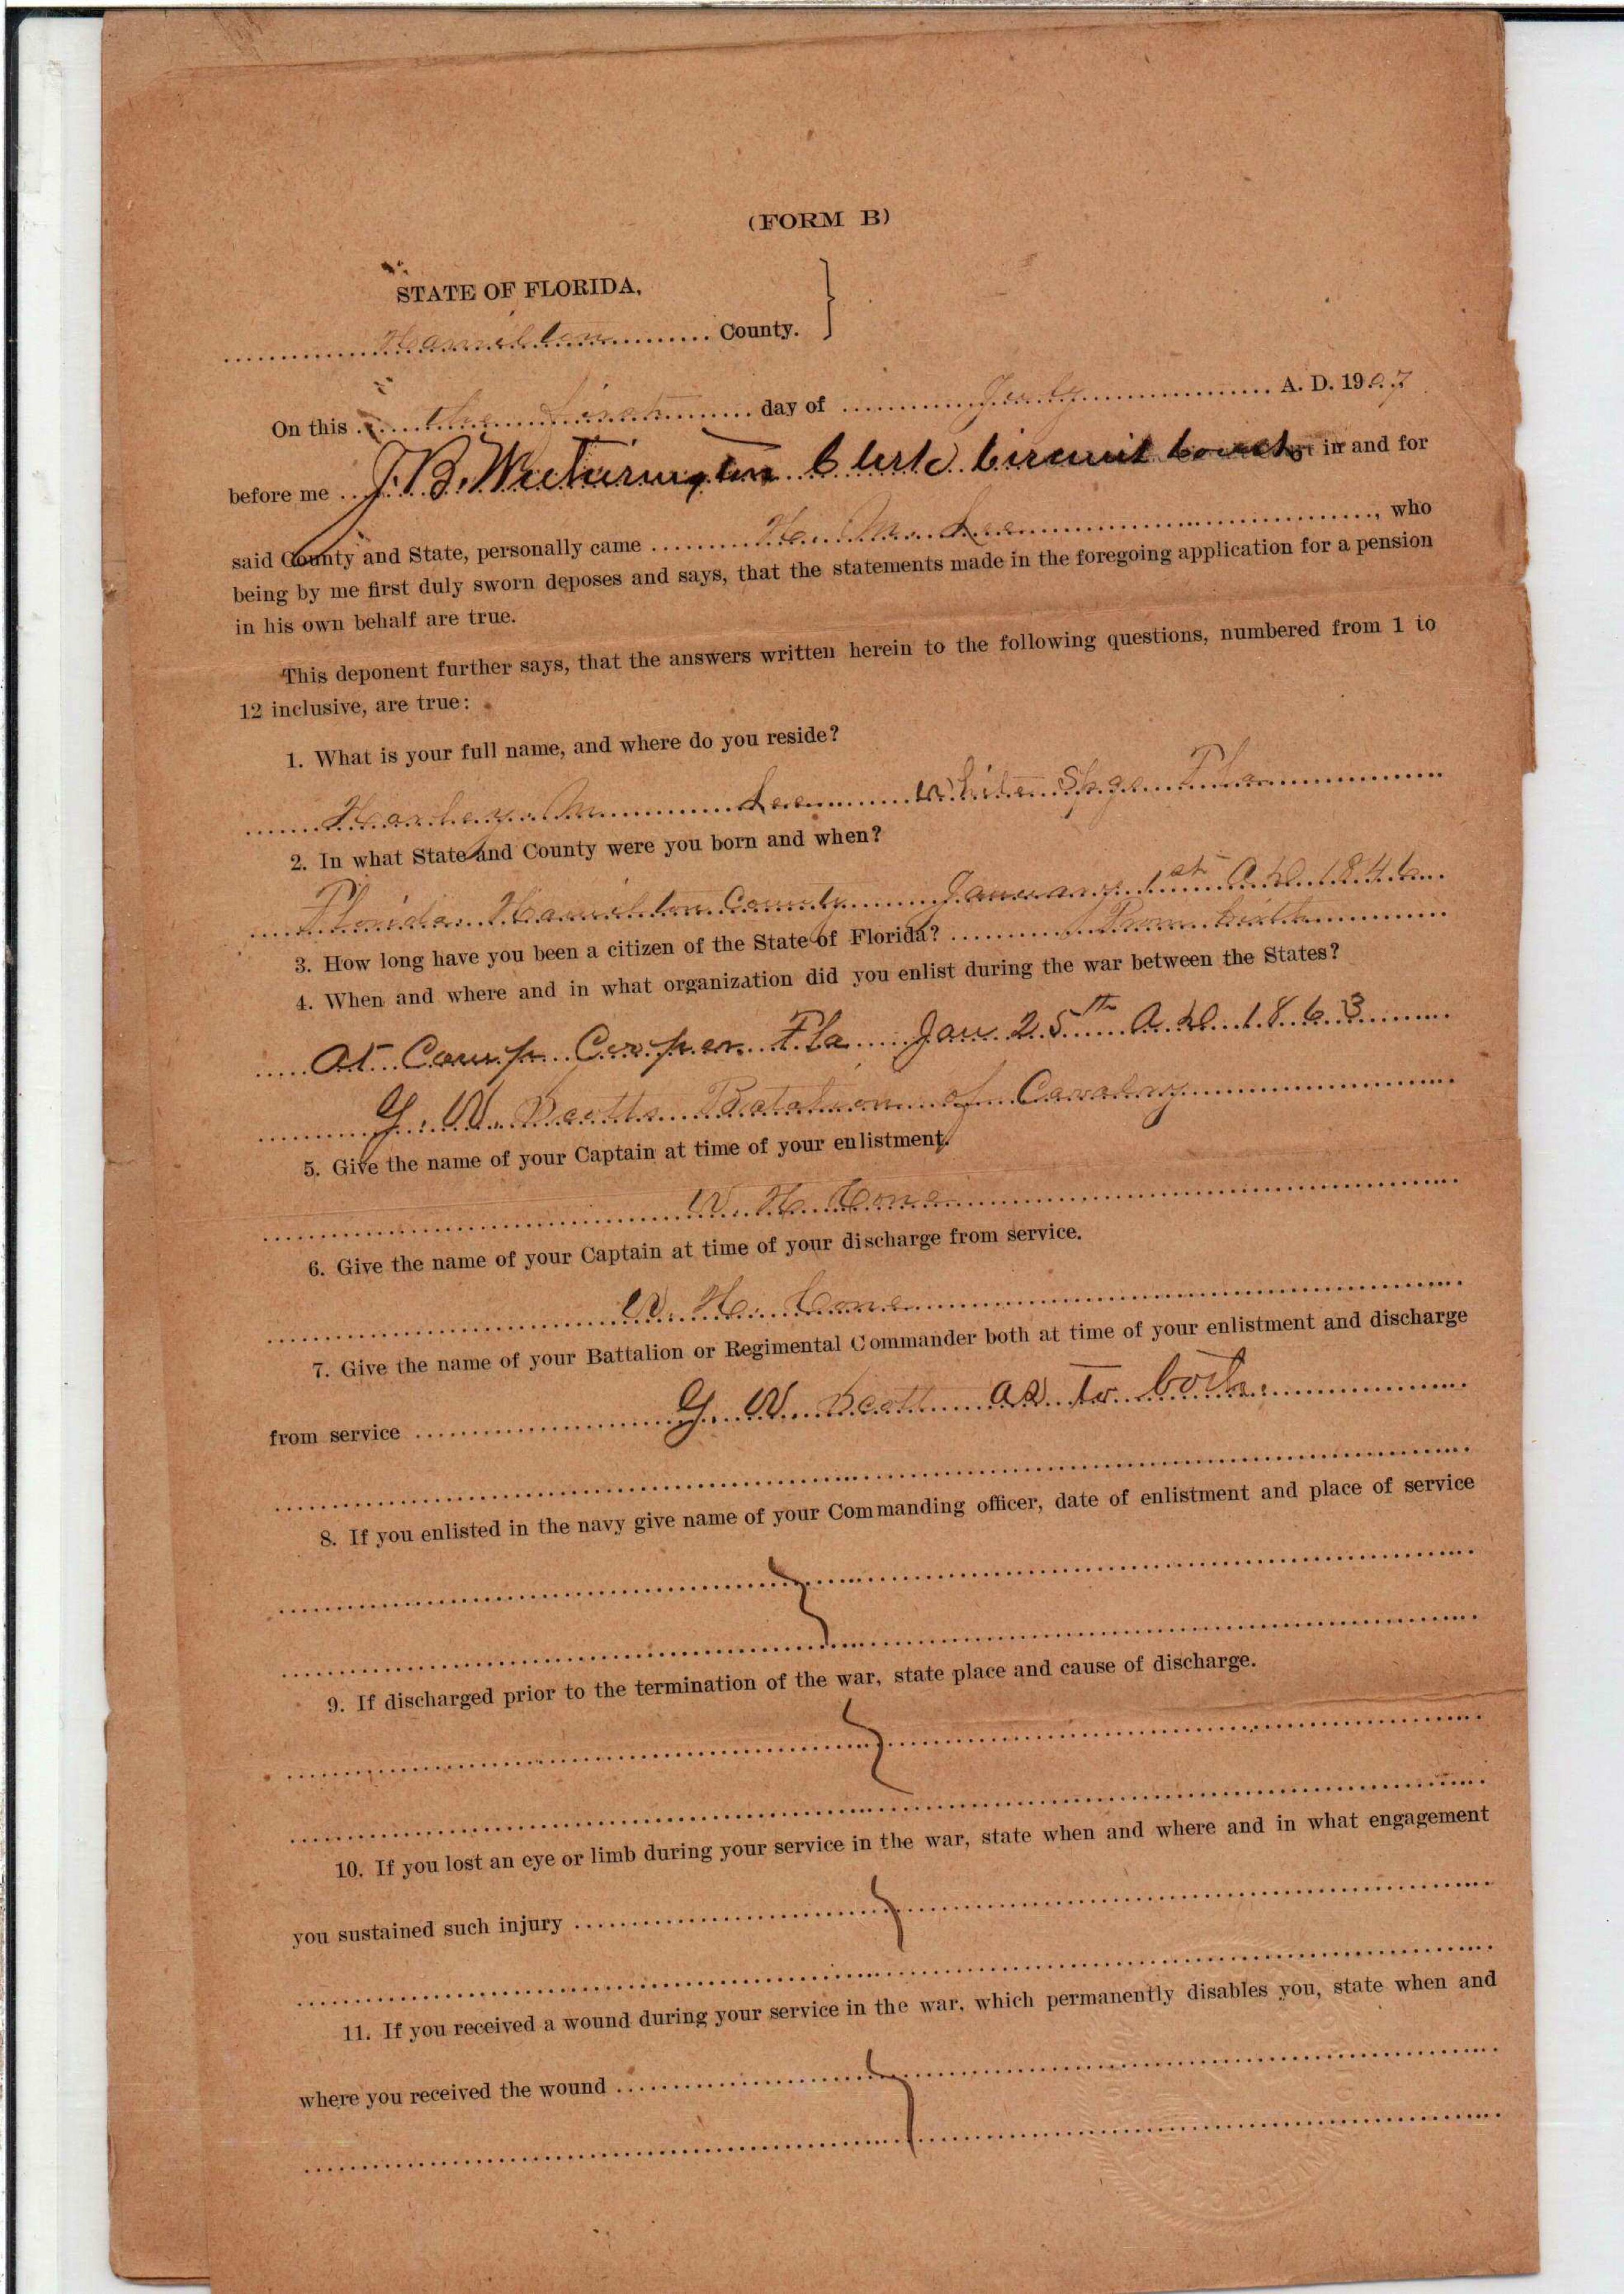 (FORM B)
STATE OF FLORIDA,
Hamilton County.
On this the first day of July A. D. 1907
before me J. B. Wetherington Clerk Circuit Court in and for
said County and State, personally came H. M. Lee, who
being by me first duly sworn deposes and says, that the statements made in the foregoing application for a pension
in his own behalf are true.
This deponent further says, that the answers written herein to the following questions, numbered from 1 to
12 inclusive, are true:
1. What is your full name, and where do you reside?
M Lee White Spgs Fla
2. In what State and County were you born and when?
Florida Hamilton County January 1st A.D. 1846
3. How long have you been a citizen of the State of Florida? From birth
4. When and where and in what organization did you enlist during the war between the States?
At Camp Cooper Fla Jan 25th A.D. 1863
G. W. Scotts Batalion of Cavalry
5. Give the name of your Captain at time of your enlistment.
W. H. Cone
6. Give the name of your Captain at time of your discharge from service.
W. H. Cone
7. Give the name of your Battalion or Regimental Commander both at time of your enlistment and discharge
from service G. W. Scott as to both
8. If you enlisted in the navy give name of your Commanding officer, date of enlistment and place of service
9. If discharged prior to the termination of the war, state place and cause of discharge.
10. If you lost an eye or limb during your service in the war, state when and where and in what engagement
you sustained such injury
11. If you received a wound during your service in the war, which permanently disables you, state when and
where you received the wound